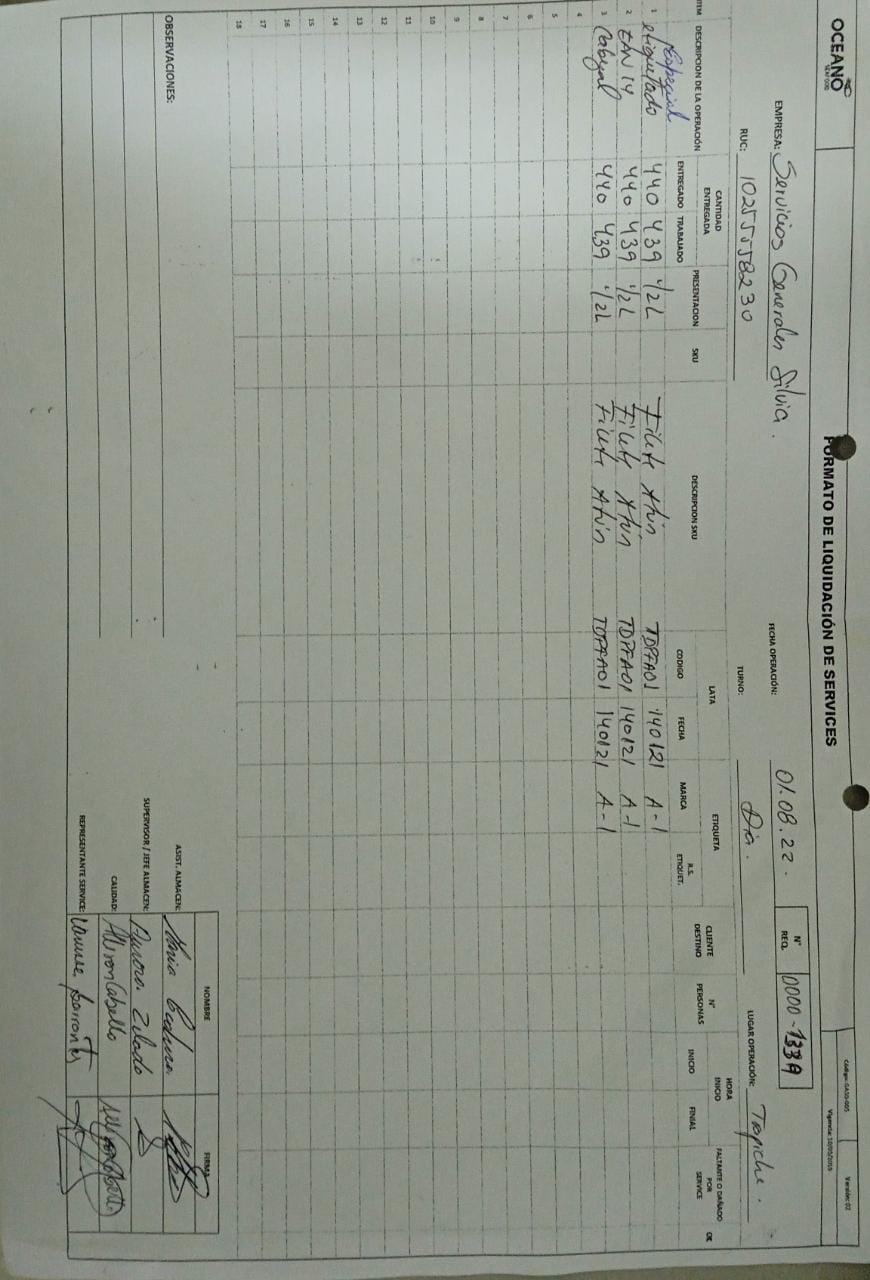 OCEANO
SEAFOOD
FORMATO DE LIQUIDACIÓN DE SERVICES
Código: GA10-005
Versión: 02
Vigencia: 10/05/2019
EMPRESA: Servicios Generales Silvia.
FECHA OPERACIÓN: 01.08.22.
N° REQ. 0000-133A
RUC: 10255558230
TURNO: Día.
LUGAR OPERACIÓN: Trapiche.
ITEM DESCRIPCION DE LA OPERACIÓN CANTIDAD ENTREGADA PRESENTACION SKU DESCRIPCION SKU LATA ETIQUETA CLIENTE DESTINO N° PERSONAS HORA INICIO FALTANTE O DAÑADO POR SERVICE OK
ENTREGADO TRABAJADO CODIGO FECHA MARCA R.S. ETIQUET. INICIO FINIAL
Especial
1 etiquetado 440 439 1/2L Filete Atún TDPFA01 140121 A-1
2 EAN 14 440 439 1/2L Filete Atún TDPFA01 140121 A-1
3 440 439 1/2L Filete Atún TDPFA01 140121 A-1
4
5
6
7
8
9
10
11
12
13
14
15
16
17
18
OBSERVACIONES:
NOMBRE FIRMA
ASIST. ALMACEN:
SUPERVISOR / JEFE ALMACEN: Aurora
CALIDAD: Allison Cabello
REPRESENTANTE SERVICE: Barrantes